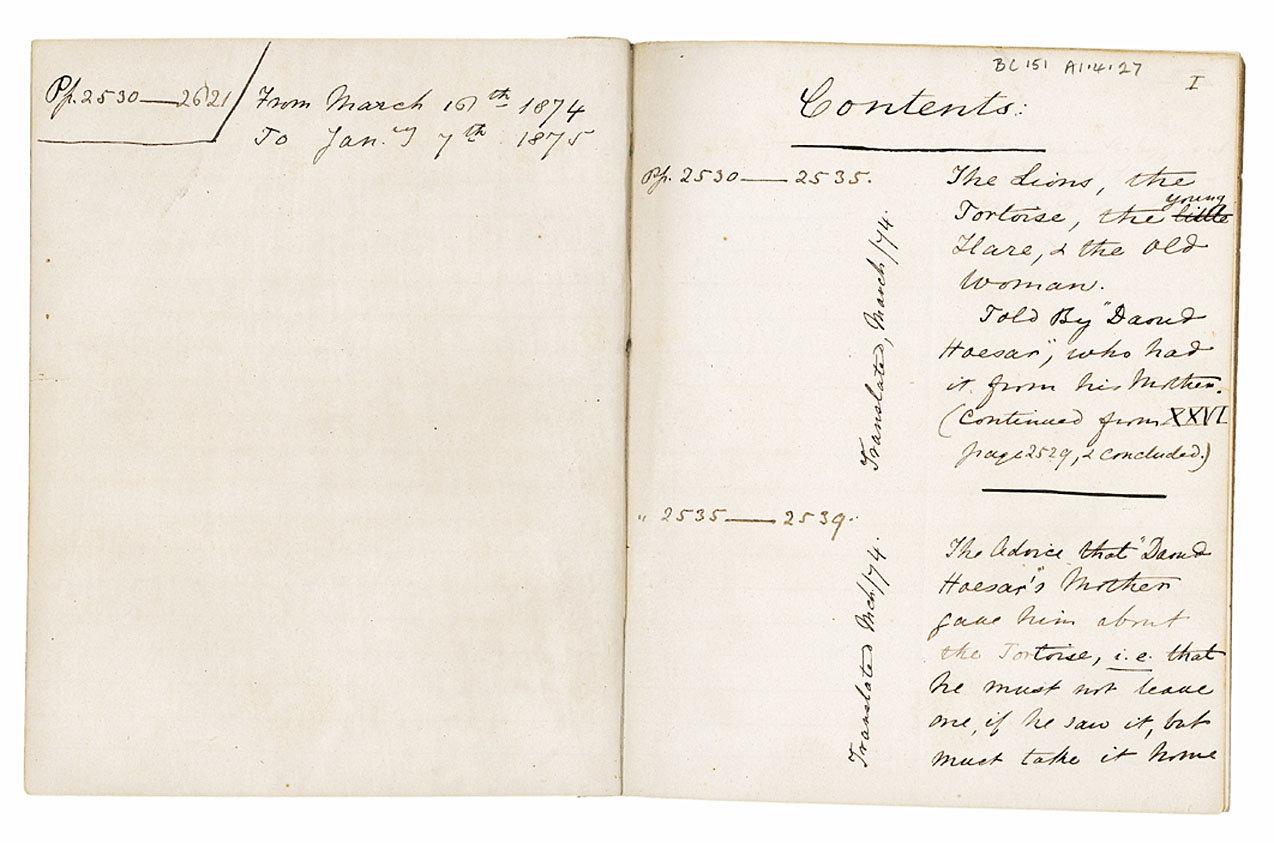 Pp. 2530—2621
From March 16th 1874
To Jan.ry 7th 1875
BC 151 A1.4.27
I
Contents:
Pp. 2530—2535.
Translated, March/74.
The Lions, the
Tortoise, the little young
Hare, & the old
woman.
Told By "Daoud
Hoesar", who had
it from his Mother.
(Continued from XXVI
page 2529, & concluded.)
" 2535—2539.
Translated Mch/74.
The Advice that "Daoud
Hoesar"'s Mother
gave him about
the Tortoise, i.e. that
he must not leave
one, if he saw it, but
must take it home